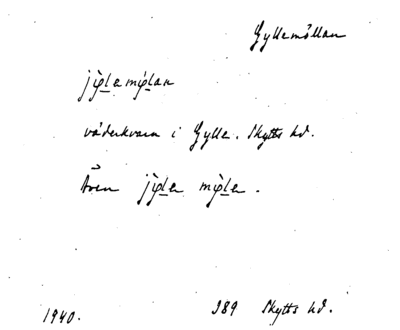 Gyllemöllan
jỳlemýlan
väderkvarn i Gylle. Skytts hd.
Även jỳle mỳle.
1940. 389 Skytts hd.